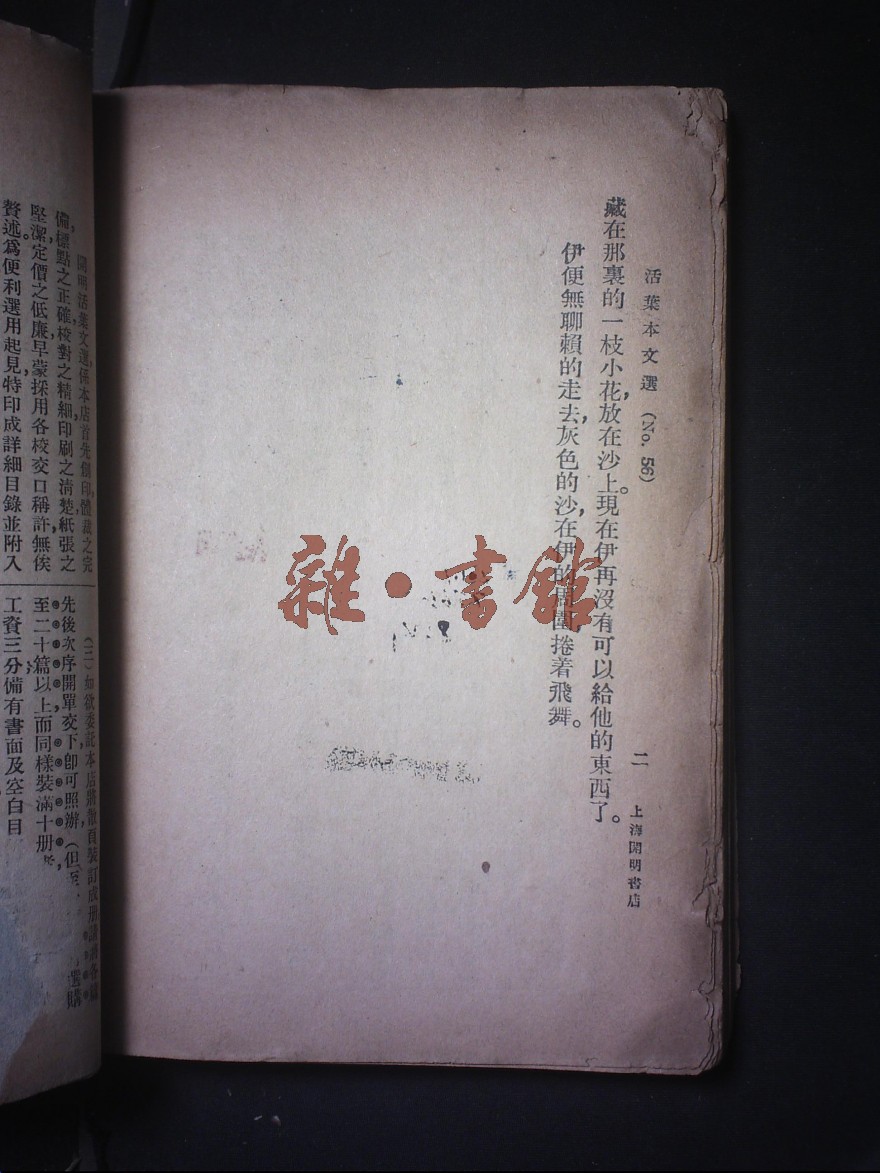 活葉本文選（No. 56）
二
上海開明書店
藏在那裏的一枝小花，放在沙上。現在伊再沒有可以給他的東西了。
伊便無聊賴的走去，灰色的沙，在伊的周圍捲着飛舞。
雜・書館
開明活葉文選，係本店首先創印，體裁之完
備，標點之正確，校對之精細，印刷之清楚，紙張之
堅潔，定價之低廉，早蒙採用各校交口稱許，無俟
贅述。爲便利選用起見，特印成詳細目錄，並附入
（三）如欲委託本店將散頁裝訂成册，請將各篇
先後次序開單交下，卽可照辦（但至
選購
至二十篇以上，而同樣裝滿十册
工資三分，備有書面及空白目